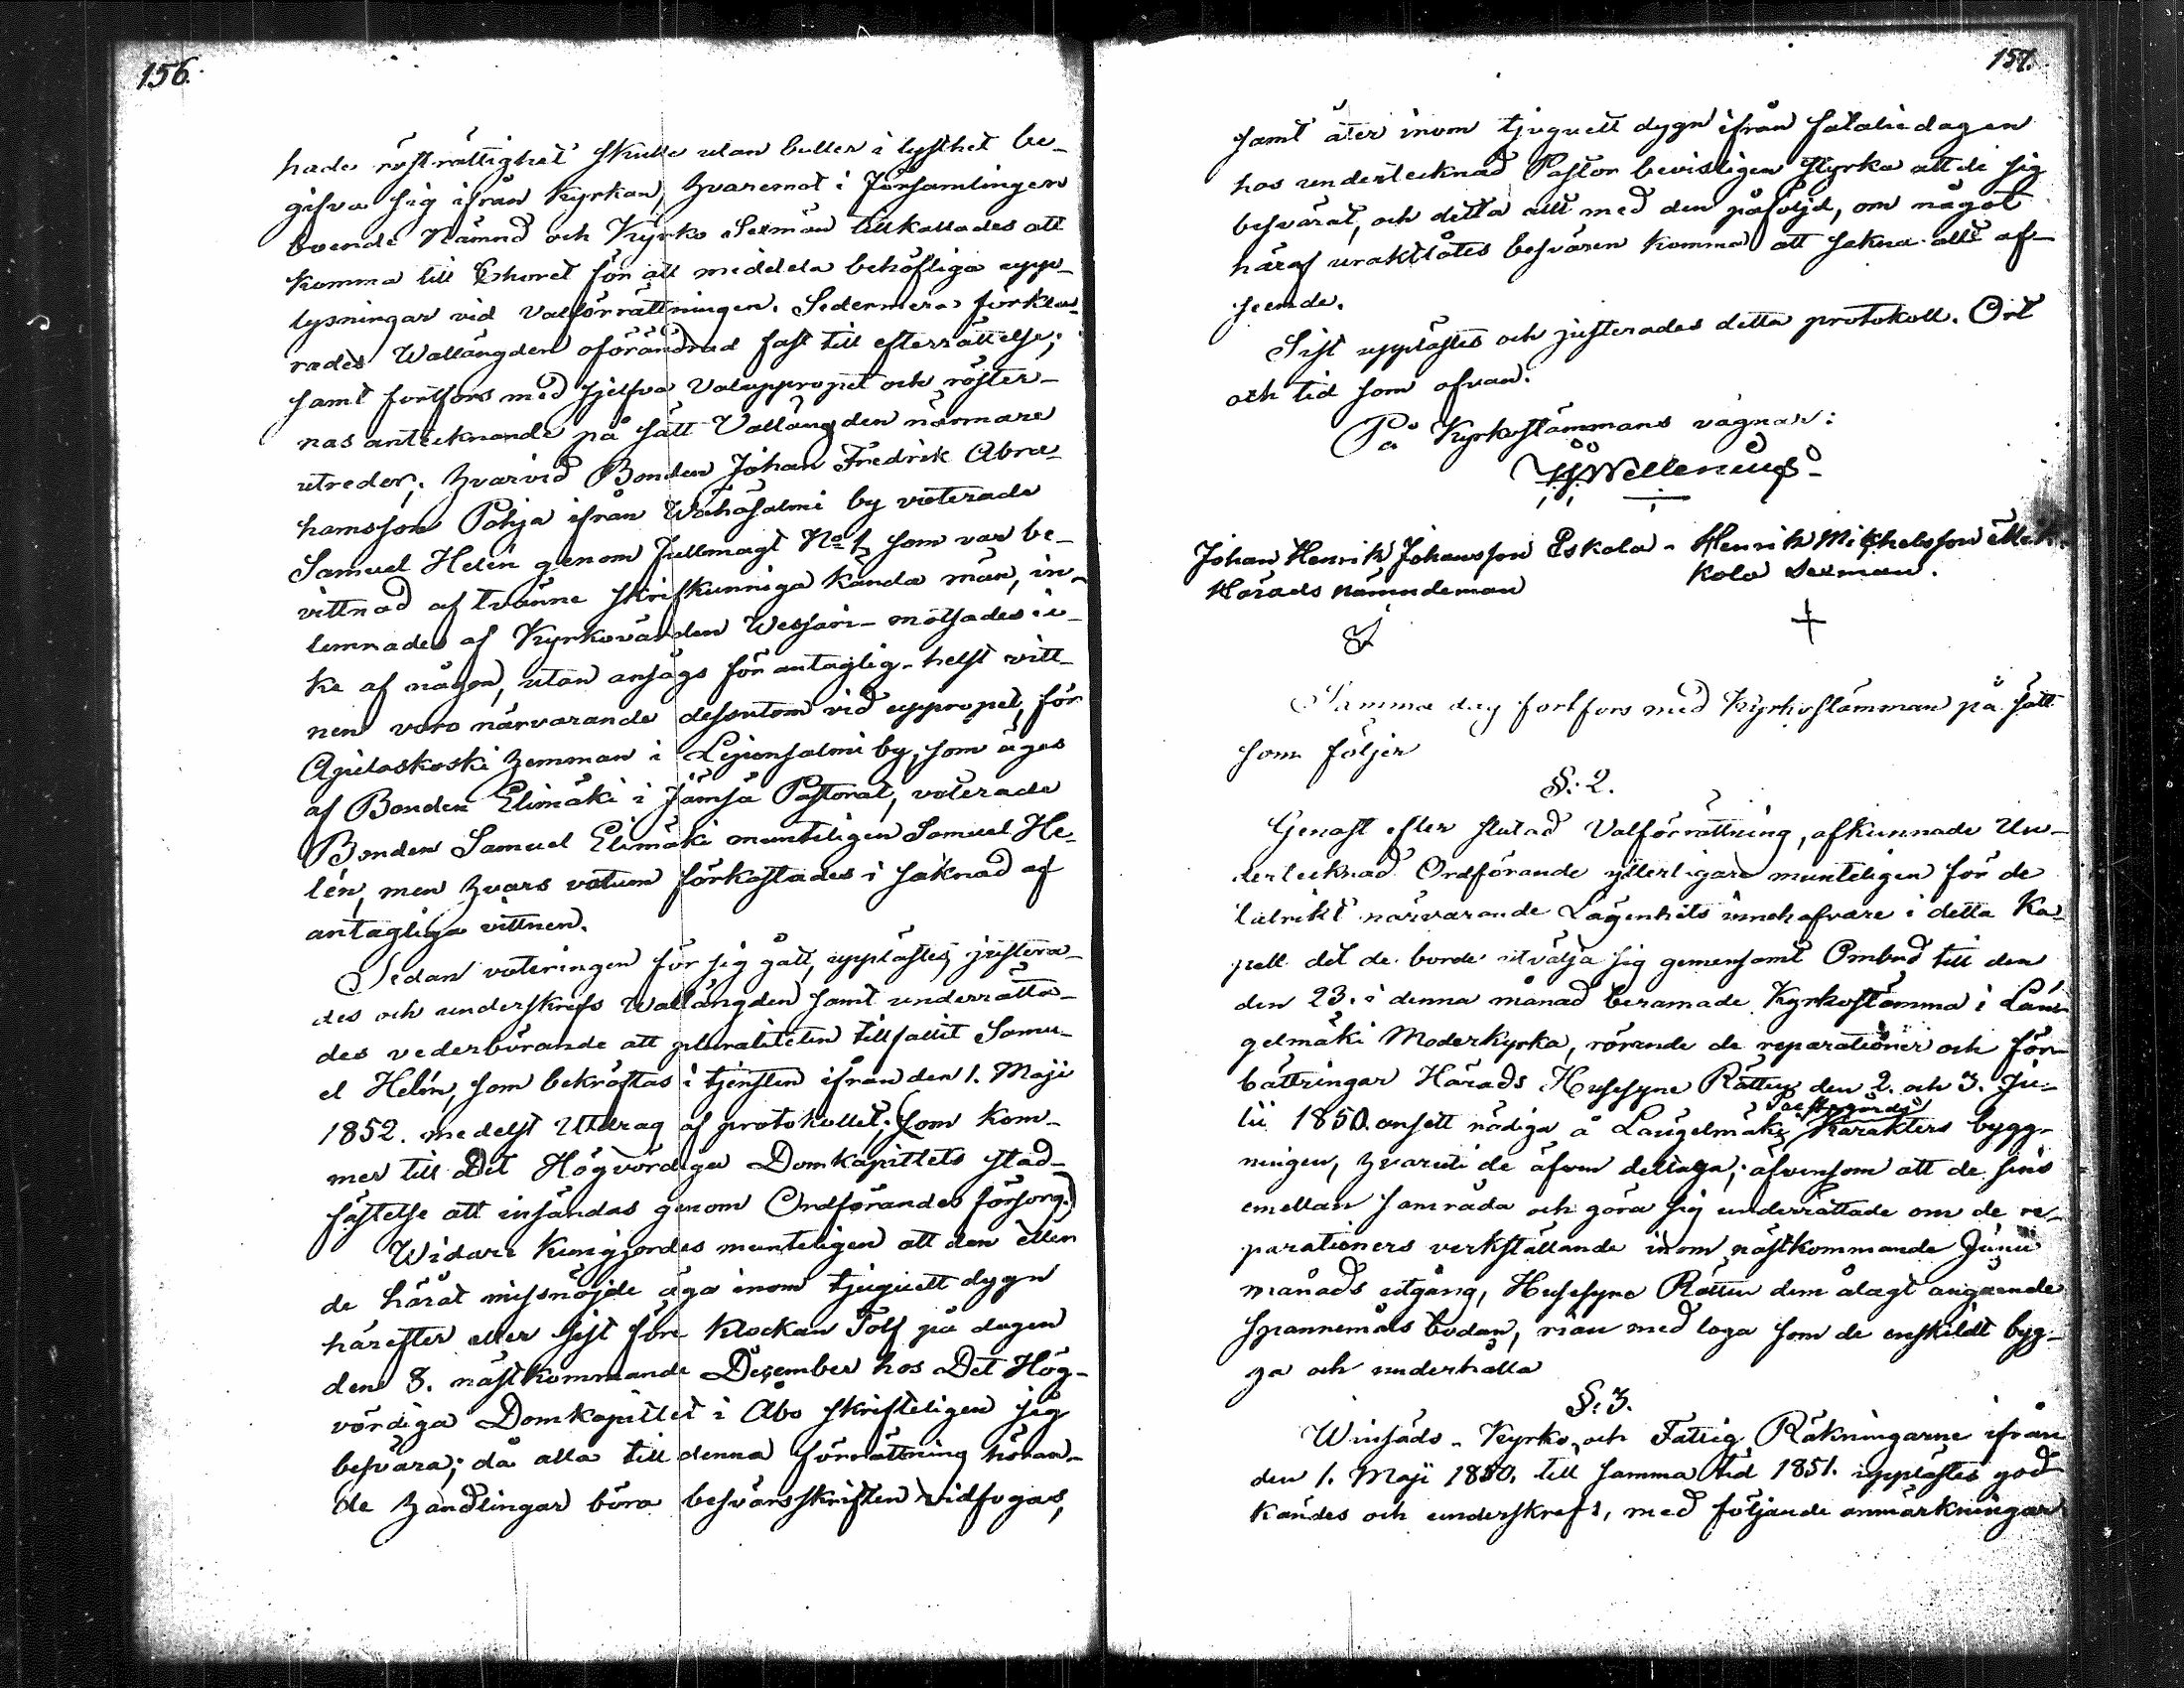 156.
hade rösträttighet skulle utan buller i tysthet be-
gifva sig ifrån Kyrkan, hvaremot i Församlingen
boende Nämnd och Kyrko Sexmän tillkallades att
komma till Choret för att meddela behöfliga upp-
lysningar vid Valförrättningen. Sedermera förkla-
rades Wallängden oförändrad fast till efterrättelse;
samt fortfors med sjelfva Valuppropet och röster-
nas antecknande på sätt Vallängden närmare
utreder; hvarvid Bonden Johan Fredrik Abra-
hamsson Pohja ifrån Wähäsalmi by voterade
Samuel Helén genom Fullmagt No 1, som var be-
vittnad af tvänne skrifkunniga kända män, in-
lemnades af Kyrkovärden Wessari - motsades ic-
ke af någon, utan ansågs för antaglig - helst vitt-
nen voro närvarande dessutom vid uppropet, för
Agielaskoski hemman i Legionsalmi by, som äges
af Bonden Elimäki i Jämsä Pastorat, voterade
Bonden Samuel Elimäki munteligen Samuel He-
lén, men hvars votum förkastades i saknad af
antagliga vittnen.
Sedan voteringen för sig gått, upplästes, justera-
des och underskrefs Wallängden samt underrätta-
des vederbörande att pluraliteten tillfallit Samu-
el Helén, som bekräftas i tjensten ifrån den 1. Maji
1852. medelst Utdrag af protokollet; (som kom-
mer till Det Högvördiga Domkapitlets stad-
fästelse att insändas genom Ordförandes försorg.)
Widare kungjordes munteligen att den eller
de häråt missnöjde äga inom tjuguett dygn
härefter eller sist före Klockan Tolf på dagen
den 8. nästkommande December hos Det Hög-
vördiga Domkapitlet i Åbo skrifteligen sig
besvära; då alla till denna förrättning höran-
de handlingar böra besvärsskriften vidfogas,
157.
samt åter inom tjuguett dygn ifrån fataliedagen
hos undertecknad Pastor bevisligen styrka att de sig
besvärat, och detta allt med den påföljd, om något
häraf uraktlåtes besvären komma att sakna allt af-
seende.
Sist upplästes och justerades detta protokoll. Ort
och tid som ofvan.
På Kyrkostämmans vägnar:
Wellenius
Johan Henrik Johansson Eskola - Henrik Mikkelsson Mik-
Härads nämndeman kola Sexman.
Samma dag fortfors med Kyrkostämman på sätt
som följer
§: 2.
Genast efter slutad Valförrättning, afkunnade Un-
dertecknad Ordförande ytterligare munteligen för de
talrikt närvarande Lägenhets innehafvare i detta Ka-
pell det de borde utvälja sig gemensamt Ombud till den
den 23. i denna månad beramade Kyrkostämma i Län-
gelmäki Moderkyrka, rörande de reparationer och för-
bättringar Härads Husesyne Rätten den 2. och 3. Ju-
lii 1850. ansett nödiga å Längelmäki Prestgårds Karakters bygg-
ningen, hvaruti de äfven deltaga; äfvensom att de sins
emellan samråda och göra sig underrättade om de re-
parationers verkställande inom nästkommande Junii
månads utgång, Husesyne Rätten dem ålagt angående
spannemåls bodan, rian med loga som de enskildt byg-
ga och underhålla
§: 3.
Winsäds - Kyrko och Fattig Räkningarne ifrån
den 1. Maji 1850. till samma tid 1851. upplästes god
kändes och underskrefs, med följande anmärkningar